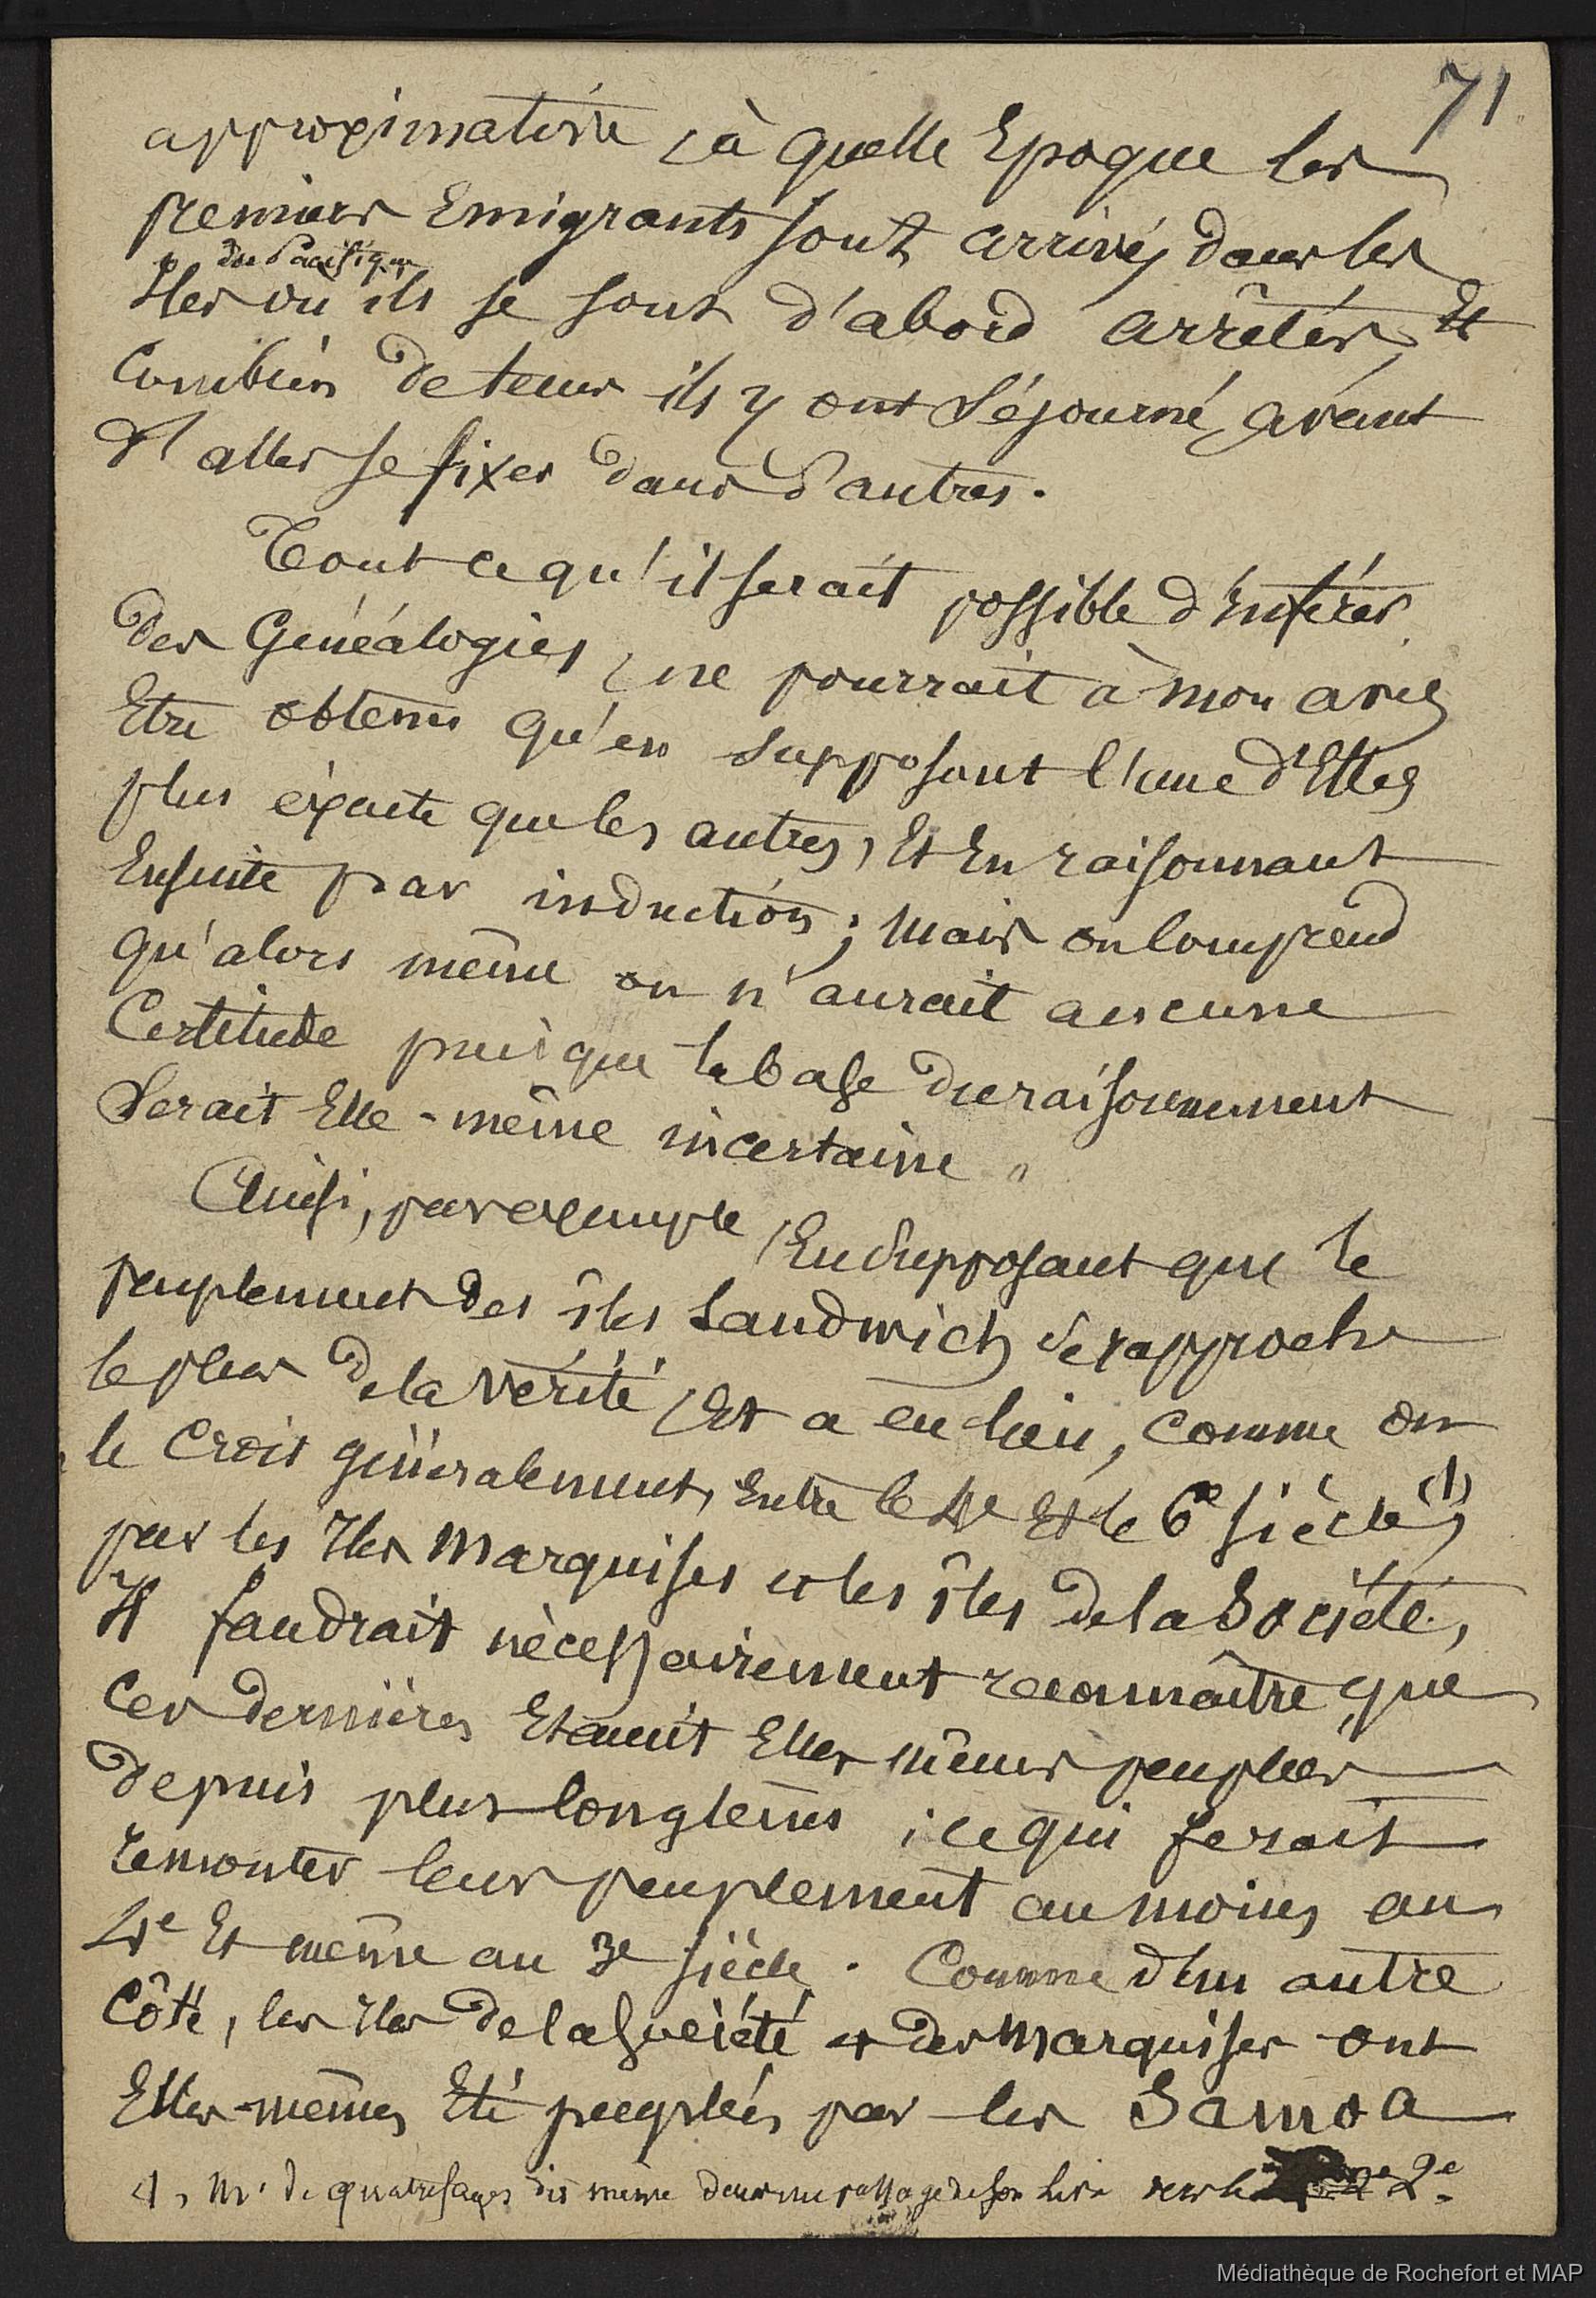 71
approximative, à quelle Epoque les
premiers Emigrants sont arrivés dans les
du Pacifique
Iles où ils se sont d'abord arrêtés, Et
Combien de tems ils y ont séjourné, avant
d'aller se fixer dans d'autres.
Tout ce qu'il serait possible d'inférer
des Généalogies, ne pourrait à mon avis
Etre obtenu qu'en supposant l'une d'Elles
plus éxacte que les autres, Et En raisonnant
Ensuite par induction; Mais on comprend
qu'alors même on n'aurait aucune
Certitude puisque la base du raisonnement
Serait Elle-même incertaine.
Ainsi, par exemple, En supposant que le
peuplement des îles Sandwich se rapproche
le plus de la vérité, Et a eu lieu, comme on
le crois généralement, Entre le 4e Et le 6e siècle, (1)
par les Iles Marquises et les îles de la Société,
Il faudrait nècessairement reconnaître que
Ces dernières Etaient Elles mêmes peuplées
depuis plus longtems; ce qui ferait
remonter leur peuplement au moins au
4e Et même au 3e siècle. Comme d'un autre
Côté, les Iles de la Société et des Marquises ont
Elles-mêmes Eté peuplées par les Samoa
1, Mr. de quatrefages dit même dans un passage de son livre vers le 2e.
Médiathèque de Rochefort et MAP